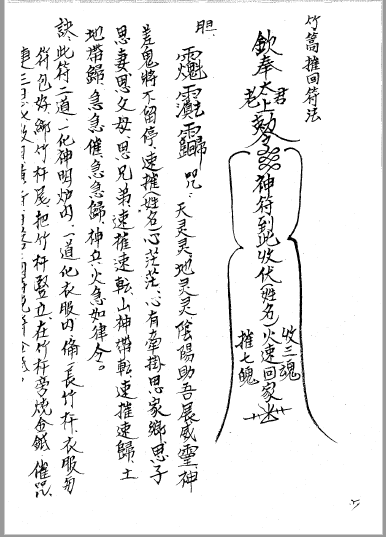 竹篙推回符法
欽奉太上老君勅令神符到此收伏(姓名)火速回家
收三魂
推七魄
胆:
咒:天灵灵地灵灵陰陽助吾展威靈神
差鬼將不留停,速推(姓名)心茫茫,心有牽掛思家鄉思子
思妻思父母,思兄弟,速推速転,山神帶転,速推速歸,土
地帶歸,急急催,急急歸,神兵火急如律令。
訣:此符二道,一化神明炉内,一道化衣服内,備一長竹杆,衣服勿
符包好,綁竹杆尾,把竹杆竪立,在竹杆旁燒金紙,催咒,